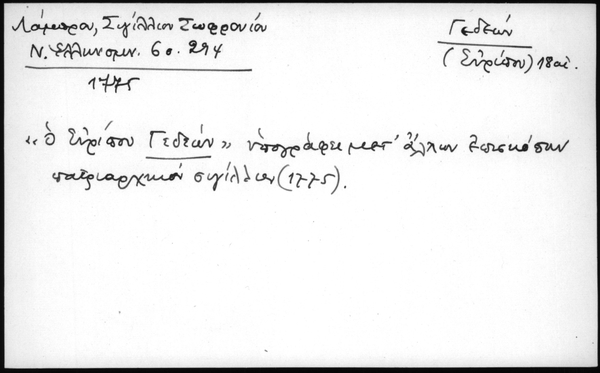 Λάμπρου, Σιγίλλιον Σωφρονίου
Ν. Ἑλληνομν. 6ος. 294
1775
Γεδεών
(Εὐρίπου) 18 αἰ.
«ὁ Εὐρίπου Γεδεών» ὑπογράφει μετ' ἄλλων ἐπισκόπων
πατριαρχικόν σιγίλλιον (1775).